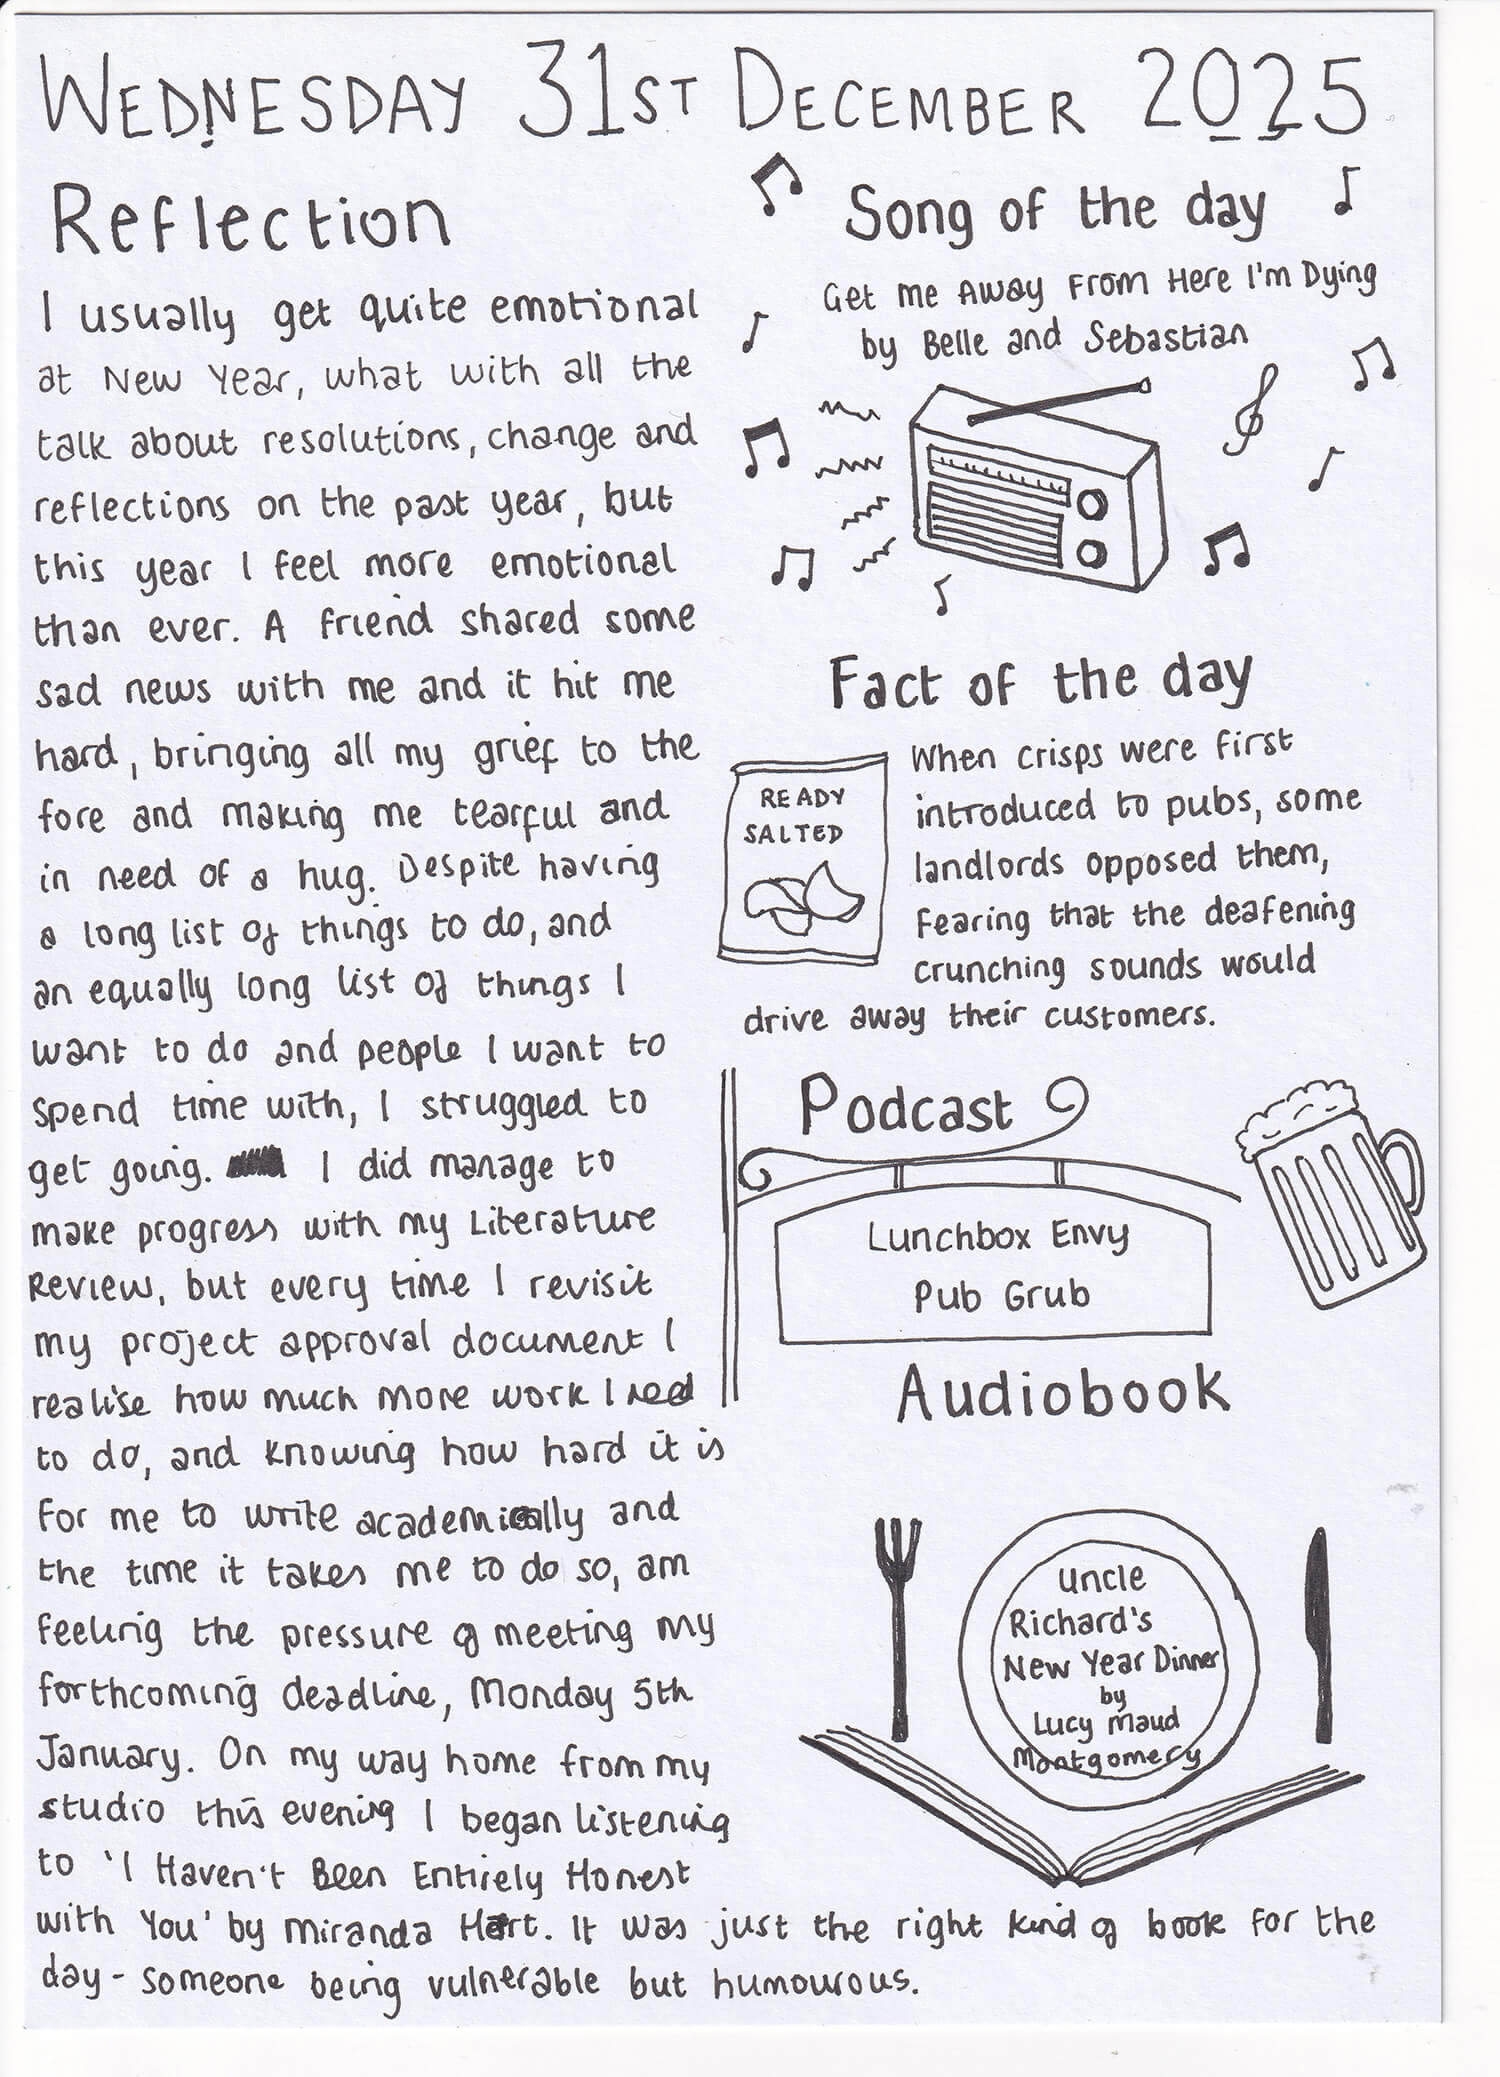 WEDNESDAY 31ST DECEMBER 2025
Reflection
I usually get quite emotional
at New Year, what with all the
talk about resolutions, change and
reflections on the past year, but
this year I feel more emotional
than ever. A friend shared some
sad news with me and it hit me
hard, bringing all my grief to the
fore and making me tearful and
in need of a hug. Despite having
a long list of things to do, and
an equally long list of things I
want to do and people I want to
spend time with, I struggled to
get going. I did manage to
make progress with my Literature
Review, but every time I revisit
my project approval document I
realise how much more work I need
to do, and knowing how hard it is
for me to write academically and
the time it takes me to do so, am
feeling the pressure of meeting my
forthcoming deadline, Monday 5th
January. On my way home from my
studio this evening I began listening
to 'I Haven't Been Entirely Honest
with You' by Miranda Hart. It was just the right kind of book for the
day - someone being vulnerable but humourous.
Song of the day
Get Me Away From Here I'm Dying
by Belle and Sebastian
Fact of the day
READY
SALTED
When crisps were first
introduced to pubs, some
landlords opposed them,
fearing that the deafening
crunching sounds would
drive away their customers.
Podcast
Lunchbox Envy
Pub Grub
Audiobook
Uncle
Richard's
New Year Dinner
by
Lucy Maud
Montgomery